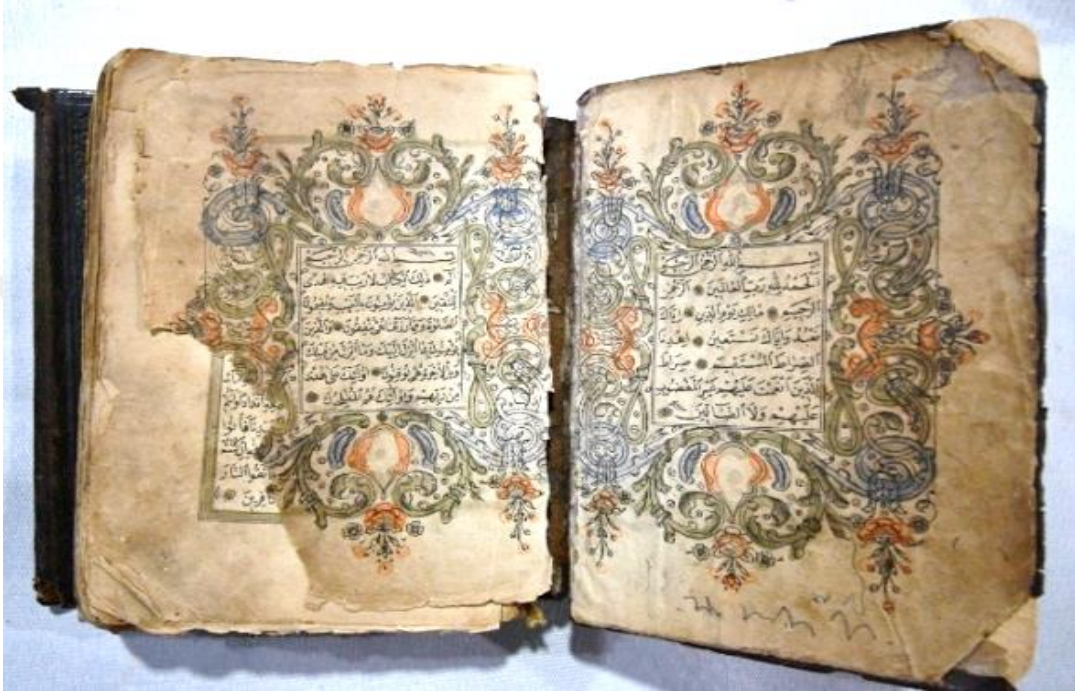 بسم الله الرحمن الرحيم
الحمد لله رب العالمين الرحمن
الرحيم مالك يوم الدين اياك
نعبد واياك نستعين اهدنا
الصراط المستقيم صراط
الذين انعمت عليهم غير المغضوب
عليهم ولا الضالين
بسم الله الرحمن الرحيم
الم ذلك الكتاب لا ريب فيه هدى
للمتقين الذين يؤمنون بالغيب ويقيمون
الصلوة ومما رزقناهم ينفقون والذين
يؤمنون بما انزل اليك وما انزل من قبلك
وبالاخرة هم يوقنون اولئك على هدى
من ربهم واولئك هم المفلحون